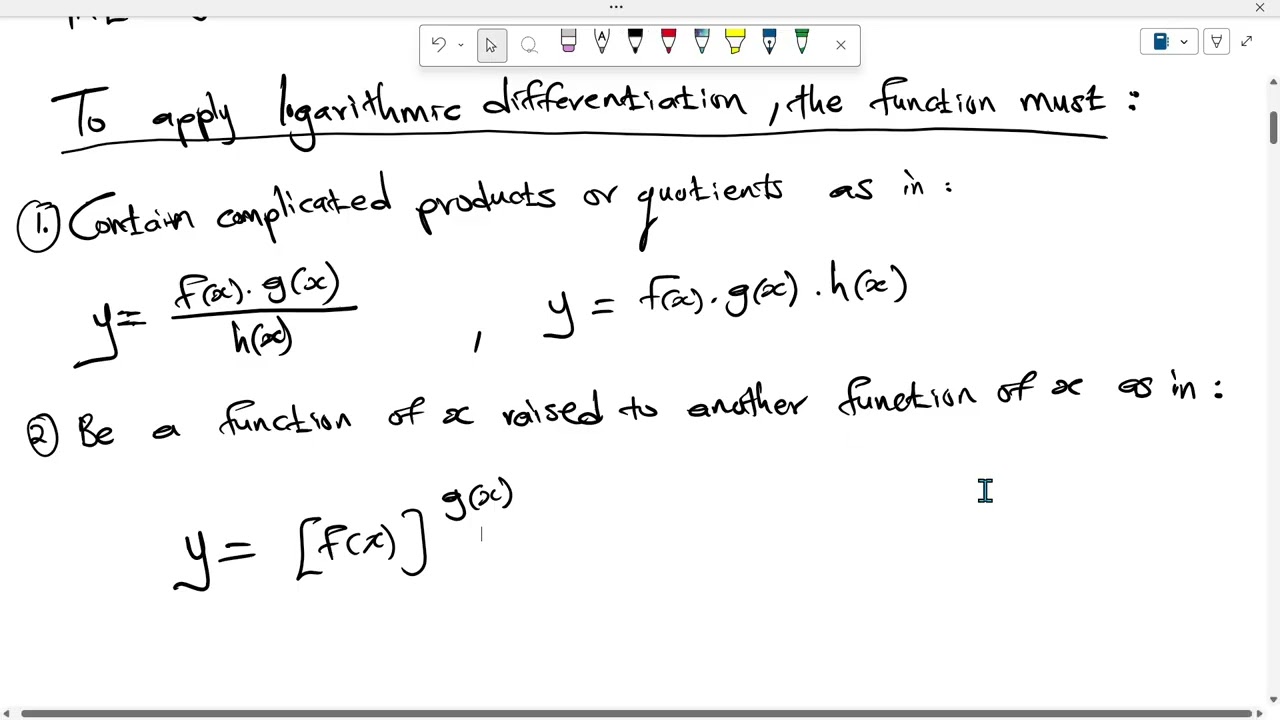 To apply logarithmic differentiation, the function must:
1. Contain complicated products or quotients as in:
y = f(x)·g(x) / h(x) , y = f(x)·g(x)·h(x)
2 Be a function of x raised to another function of x as in:
y = [f(x)]^g(x)